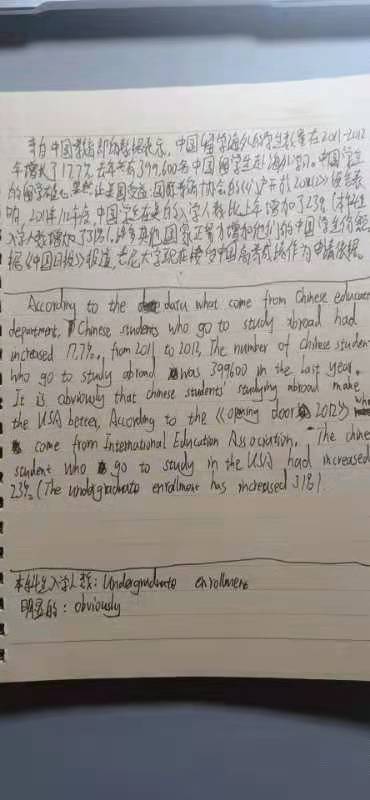 来自中国教育部的数据表示，中国留学海外的学生数量在2011-2012
年增长了17.7%，去年共有399,600名中国留学生赴海外学习。中国学生
的留学在也美国受益：国际教育协会的《门户开放2012》报告表
明，2011年12年度，中国学生在美的入学人数比上年增加了23%（本科生
入学人数增加了31%），许多其他国家正努力增加他们的中国学生份额
据《中国日报》报道，悉尼大学现在接受中国高考成绩作为申请依据。
According to the data what come from Chinese educatio
department, Chinese students who go to study abroad had
increased 17.7%, from 2011 to 2012, The number of chinese student
who go to study abroad was 399600 in the last year.
It is obviously that chinese students' studying abroad make
the USA better, According to the 《opening door 2012》
come from International Education Association, The chine
student who go to study in the USA had increased
23% (The undergraduate enrollment has increased 31%)
本科生入学人数: Undergraduate enrollment
明显的: obviously